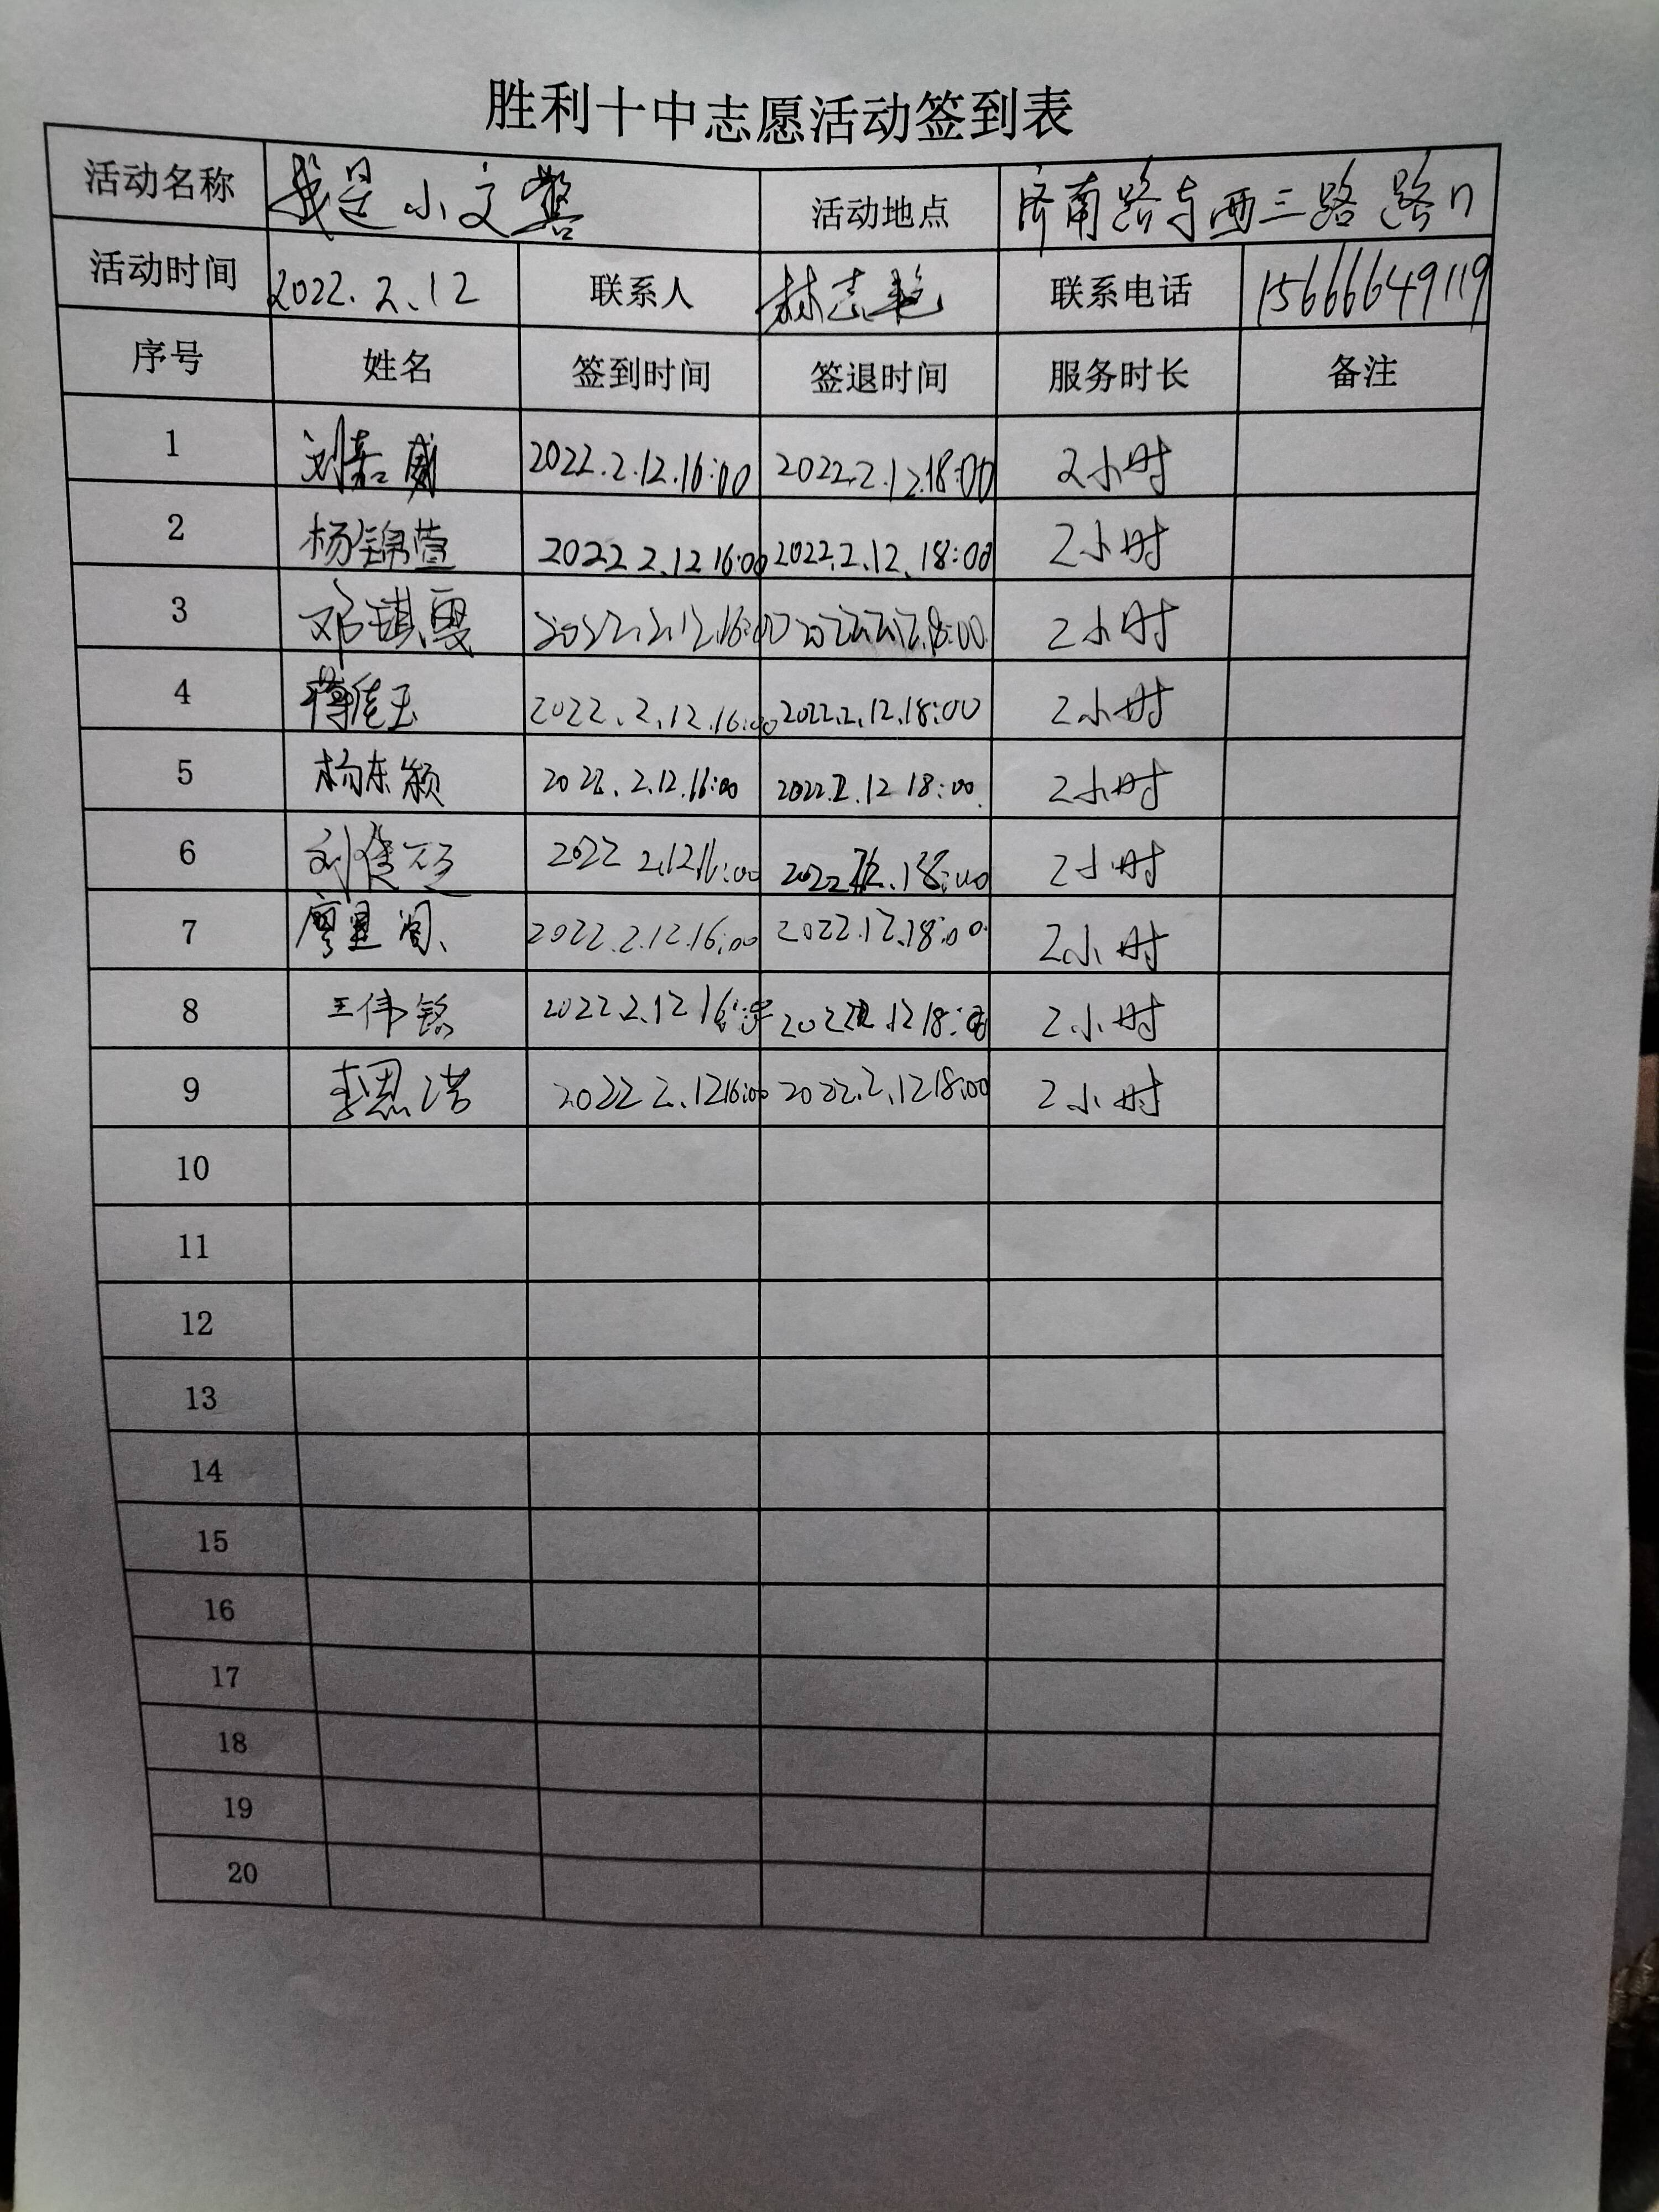 胜利十中志愿活动签到表
活动名称 我是小交警 活动地点 济南路与西三路路口
活动时间 2022.2.12 联系人 林志艳 联系电话 15666649119
序号 姓名 签到时间 签退时间 服务时长 备注
1 刘嘉威 2022.2.12.16:00 2022.2.12.18:00 2小时
2 杨锦萱 2022 2.12 16:00 2022.2.12.18:00 2小时
3 邓琪雯 2022.2.12.16:00 2022.2.12.18:00 2小时
4 蒋佳玉 2022.2.12.16:00 2022.2.12.18:00 2小时
5 杨东颖 2022.2.12.16:00 2022.2.12 18:00 2小时
6 刘俊 2022 2.12 16:00 2022 .18:00 2小时
7 廖星 2022.2.12.16:00 2022.12.18:00 2小时
8 王伟铭 2022.2.12 16: 2022 .12 18: 2小时
9 李恩浩 2022 2.12 16:00 2022.2.12 18:00 2小时
10
11
12
13
14
15
16
17
18
19
20